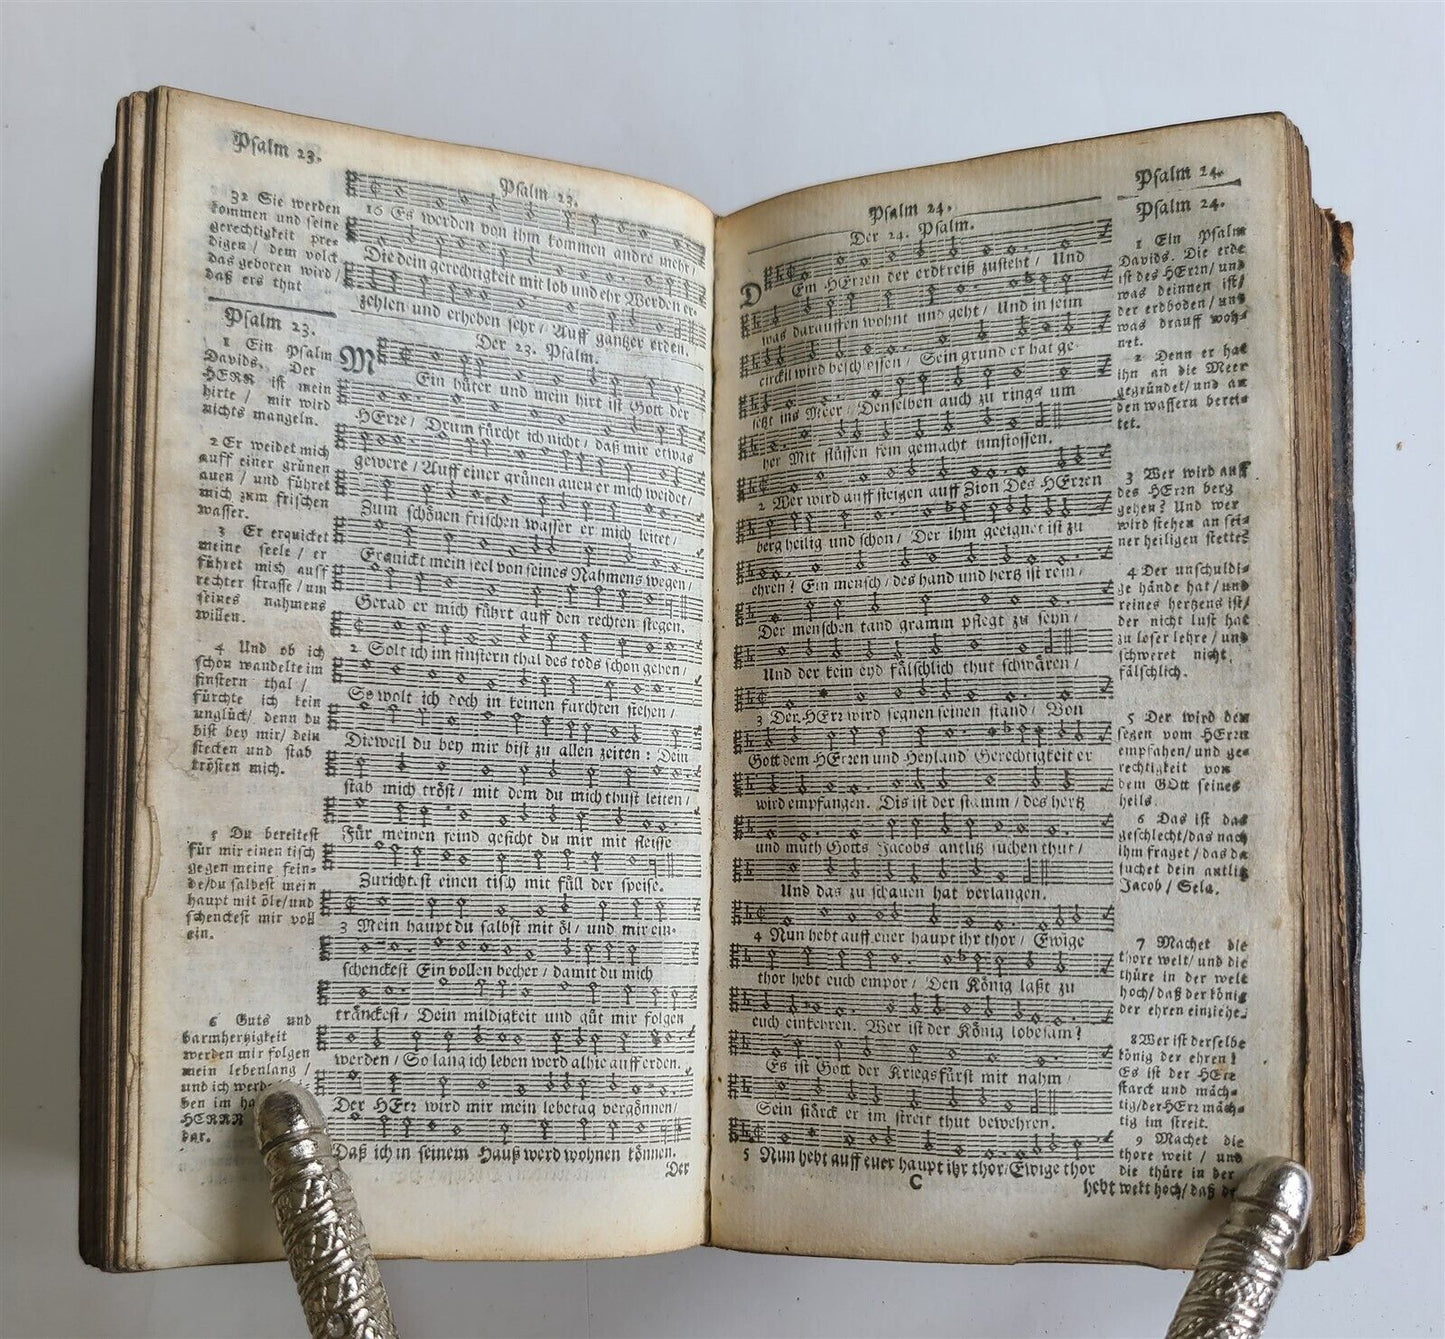 Psalm 23.
32 Sie werden
kommen und seine
gerechtigkeit pre
digen / dem volck
das geboren wird /
daß ers thut
Psalm 23.
1 Ein Psalm
Davids. Der
HERR ist mein
hirte / mir wird
nichts mangeln.
2 Er weidet mich
auff einer grünen
auen / und führet
mich zum frischen
wasser.
3 Er erquicket
meine seele / er
führet mich auff
rechter strasse / um
seines nahmens
willen.
4 Und ob ich
schon wandelte im
finstern thal /
fürchte ich kein
unglück / denn du
bist bey mir / dein
stecken und stab
trösten mich.
5 Du bereitest
für mir einen tisch
gegen meine fein-
de / du salbest mein
haupt mit öle / und
schenckest mir voll
ein.
6 Guts und
barmhertzigkeit
werden mir folgen
mein lebenlang /
und ich werde
ben im ha
HERRN
dar.
Psalm 23.
16 Es werden von ihm kommen andre mehr /
Die dein gerechtigkeit mit lob und ehr Werden er-
zehlen und erheben sehr / Auff gantzer erden.
Der 23. Psalm.
Mein hüter und mein hirt ist Gott der
HErre / Drum fürcht ich nicht / daß mir etwas
gewere / Auff einer grünen auen er mich weidet /
Zum schönen frischen wasser er mich leitet /
Erquickt mein seel von seines Nahmens wegen /
Gerad er mich führt auff den rechten stegen.
2 Solt ich im finstern thal des tods schon gehen /
So wolt ich doch in keinen farchten stehen /
Dieweil du bey mir bist zu allen zeiten : Dein
stab mich tröst / mit dem du mich thust leiten /
Für meinen feind gesicht du mir mit fleisse
Zurichtest einen tisch mit füll der speise.
3 Mein haupt du salbst mit öl / und mir ein-
schenckest Ein vollen becher / damit du mich
tränckest / Dein mildigkeit und güt mir folgen
werden / So lang ich leben werd alhie auff erden.
Der HErr wird mir mein lebetag vergönnen /
Daß ich in seinem Hauß werd wohnen können.
Der
Psalm 24.
Psalm 24.
Der 24. Psalm.
Dem HErren der erdkreiß zusteht / Und
was darauffen wohnt und geht / Und in seim
circkil wird beschlossen / Sein grund er hat ge-
setzt ins Meer / Denselben auch zu rings um
her Mit flüssen fein gemacht umflossen.
2 Wer wird auff steigen auff Zion Des HErren
berg heilig und schon / Der ihm geeignet ist zu
ehren? Ein mensch / des hand und hertz ist rein /
Der menschen tand gramm pflegt zu seyn /
Und der kein eyd fälschlich thut schwären /
3 Der HErr wird segnen seinen stand / Von
Gott dem HErren und Heyland Gerechtigkeit er
wird empfangen. Dis ist der stamm / des hertz
und muth Gotts Jacobs antlitz suchen thut /
Und das zu schauen hat verlangen.
4 Nun hebt auff euer haupt ihr thor / Ewige
thor hebt euch empor / Den König laßt zu
euch einkehren. Wer ist der König lobesam?
Es ist Gott der Kriegsfürst mit nahm /
Sein stärck er im streit thut bewehren.
5 Nun hebt auff euer haupt ihr thor / Ewige thor
C
hebt
Psalm 24.
1 Ein Psalm
Davids. Die erde
ist des HErrn / und
was deinnen ist /
der erdboden / und
was drauff woh-
net.
2 Denn er hat
ihn an die Meer
gegründet / und an
den wassern berei-
tet.
3 Wer wird auff
des HErrn berg
gehen? Und wer
wird stehen an sei-
ner heiligen stette?
4 Der unschuldi-
ge hände hat / und
reines hertzens ist /
der nicht lust hat
zu loser lehre / und
schweret nicht
fälschlich.
5 Der wird den
segen vom HErrn
empfahen / und ge-
rechtigkeit von
dem GOtt seines
heils.
6 Das ist das
geschlecht / das nach
ihm fraget / das da
suchet dein antlitz
Jacob / Sela.
7 Machet die
thore weit / und die
thüre in der welt
hoch / daß der könig
der ehren einziehe.
8 Wer ist derselbe
könig der ehren?
Es ist der HErr
starck und mäch-
tig / der HErr mäch-
tig im streit.
9 Machet die
thore weit / und
die thüre in der
welt hoch / daß